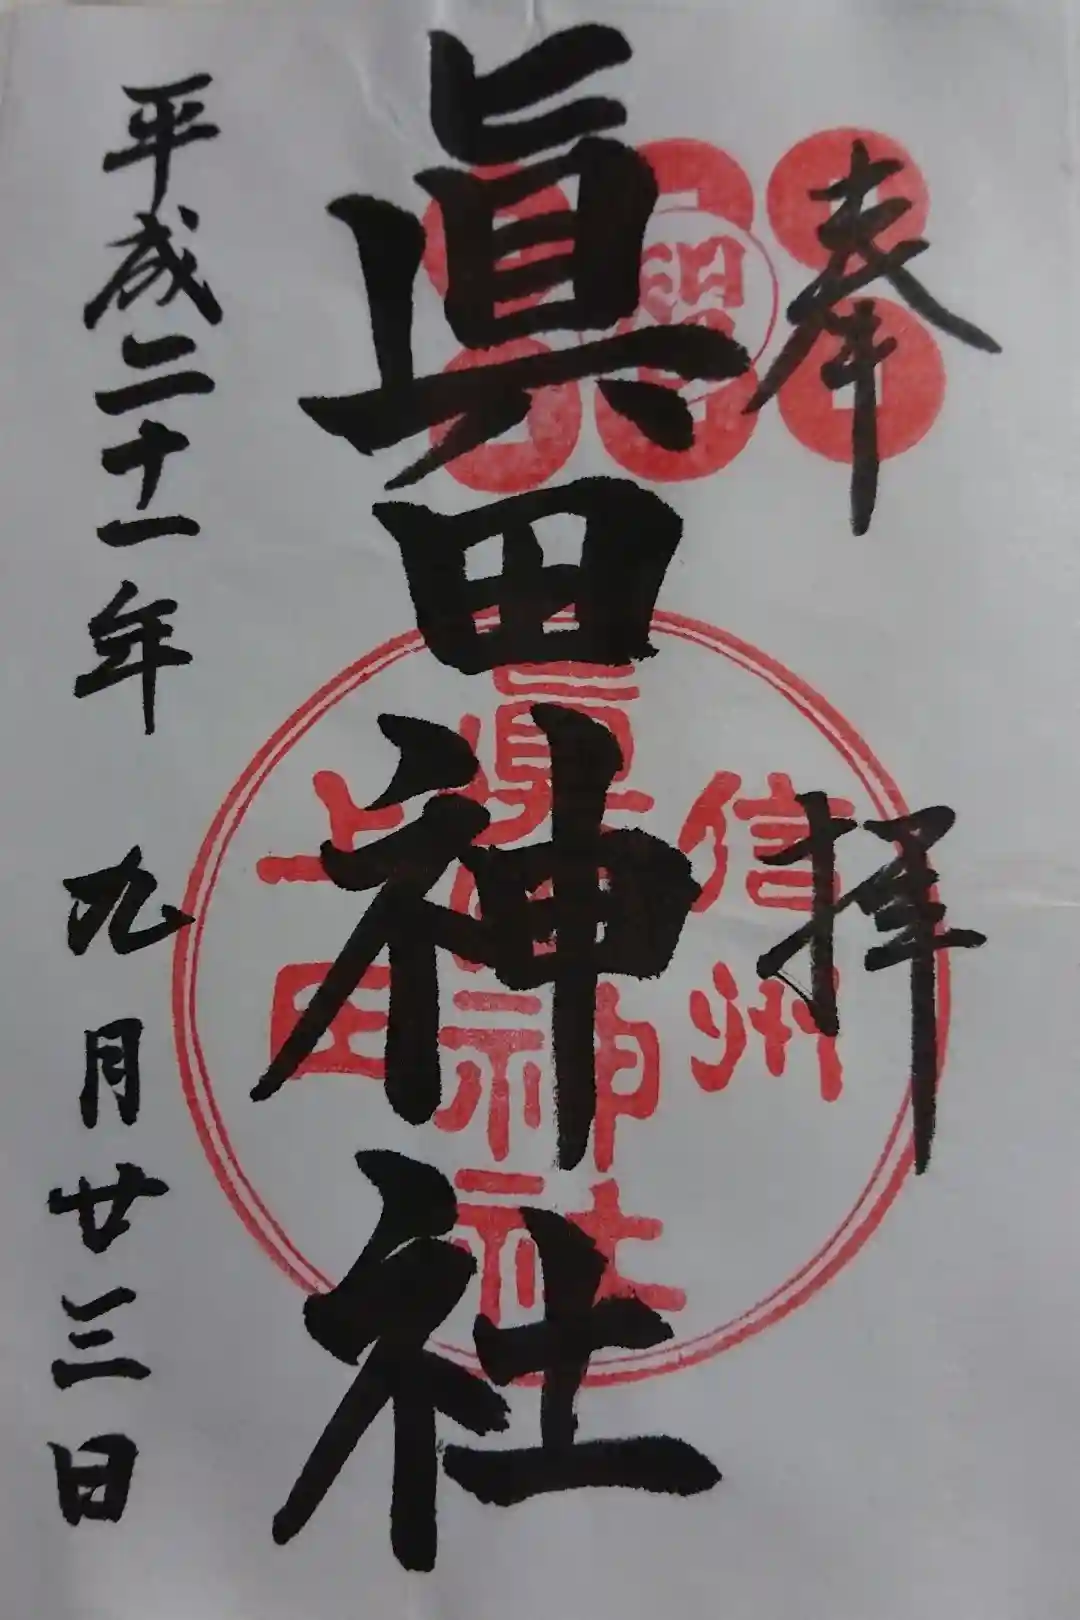 奉拝
眞田神社
信州
眞田神社
上田
平成二十一年九月廿三日